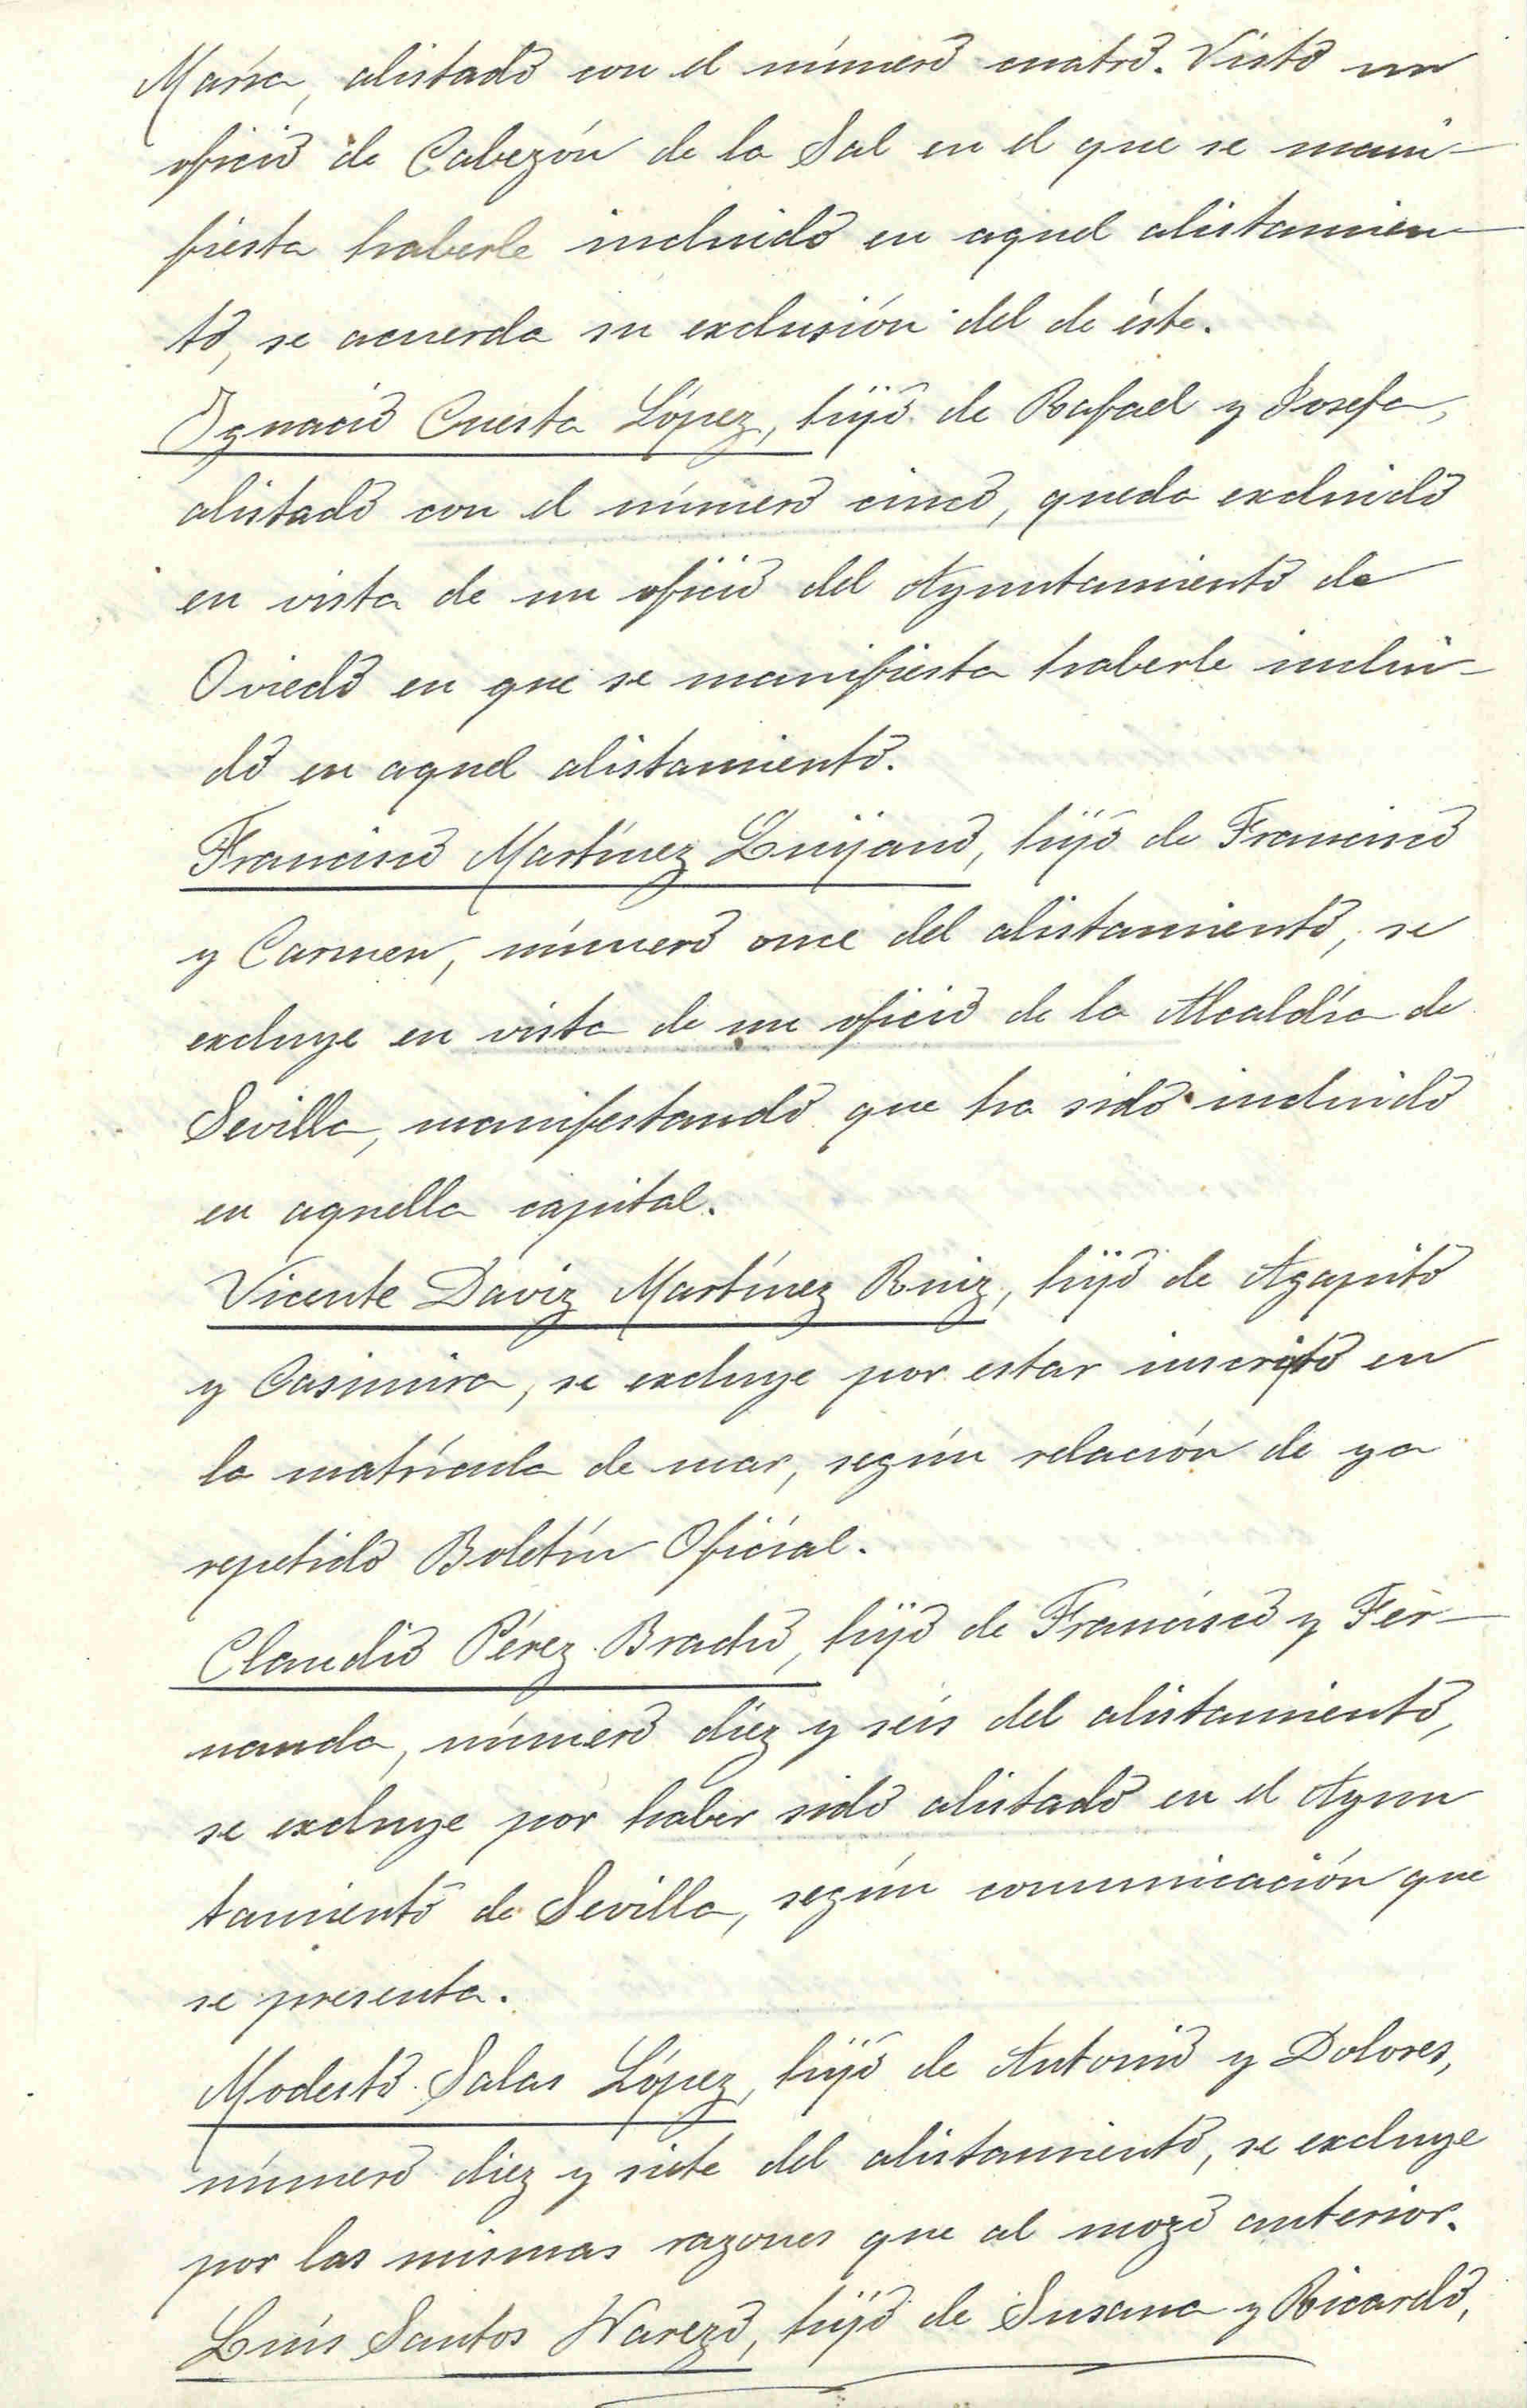 María, alistado con el número cuatro. Visto un
oficio de Cabezón de la Sal en el que se mani-
fiesta haberle incluido en aquel alistamien-
to, se acuerda su exclusión del de éste.
Ignacio Cuesta López, hijo de Rafael y Josefa,
alistado con el número cinco, queda excluido
en vista de un oficio del Ayuntamiento de
Oviedo en que se manifiesta haberle inclui-
do en aquel alistamiento.
Francisco Martínez Luijano, hijo de Francisco
y Carmen, número once del alistamiento, se
excluye en vista de un oficio de la Alcaldía de
Sevilla, manifestando que ha sido incluido
en aquella capital.
Vicente Daviz Martínez Ruiz, hijo de Agapito
y Casimira, se excluye por estar inscripto en
la matrícula de mar, según relación de ya
repetido Boletín Oficial.
Claudio Pérez Bradió, hijo de Francisco y Fer-
nanda, número diez y seis del alistamiento,
se excluye por haber sido alistado en el Ayun
tamiento de Sevilla, según comunicación que
se presenta.
Modesto Salas López, hijo de Antonio y Dolores,
número diez y siete del alistamiento, se excluye
por las mismas razones que al mozo anterior.
Luis Santos Narezo, hijo de Susana y Ricardo,